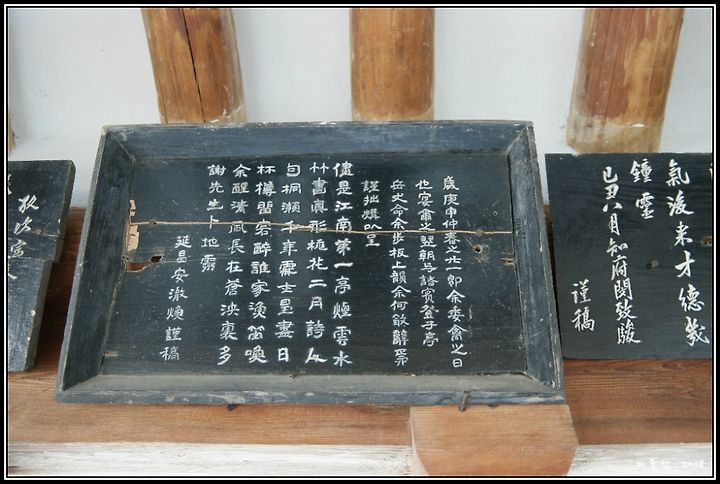 氣浚来才德幾
鍾靈
己丑八月知府閔致駿
謹稿
歲庚申仲春之廿一卽余委禽之日
也宴禽之翌朝与諸賓登子亭
岳丈命余步板上韻余何敢辭苐
謹拙構以呈
儘是江南第一亭煙雲水
竹畵眞形桃花二月詩人
句桐瀨千年處士星盡日
杯樽留客醉誰家漁笛喚
余醒淸風長在蒼泱裏多
謝先生卜地靈
延昌安澈煥謹稿
敬次